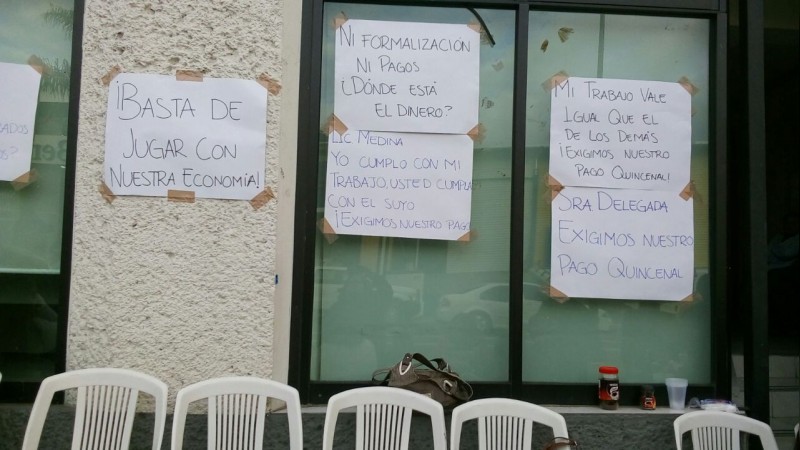 ADOS
OS?
¡BASTA DE
JUGAR CON
NUESTRA ECONOMÍA!
NI FORMALIZACIÓN
NI PAGOS
¿DÓNDE ESTÁ
EL DINERO?
LIC MEDINA
YO CUMPLO CON MI
TRABAJO, USTED CUMPLA
CON EL SUYO
¡EXIGIMOS NUESTRO PAGO
MI TRABAJO VALE
IGUAL QUE EL
DE LOS DEMÁS
¡EXIGIMOS NUESTRO
PAGO QUINCENAL!
SRA. DELEGADA
EXIGIMOS NUESTRO
PAGO QUINCENAL